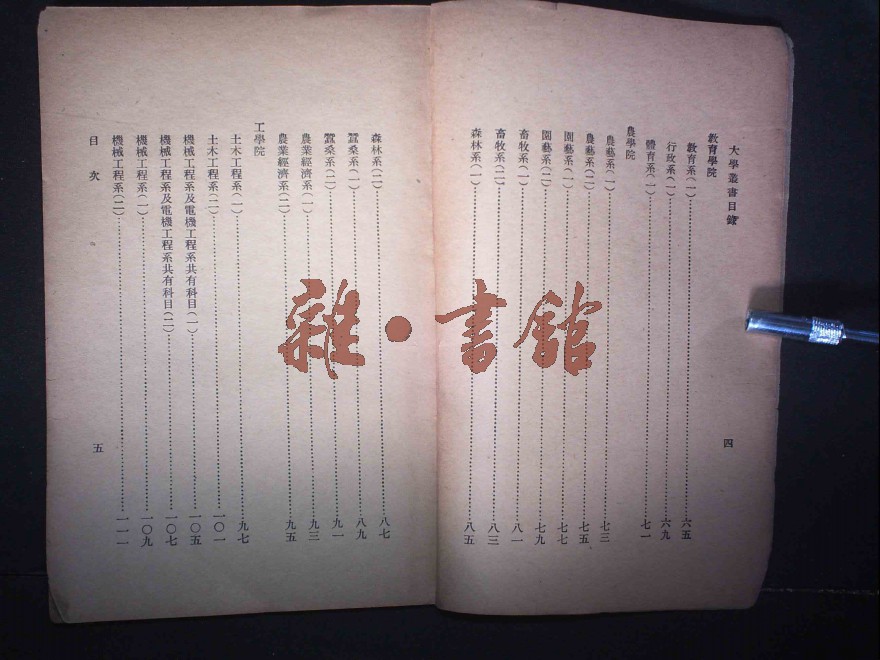 大學叢書目錄
四
教育學院
教育系(一)……六五
行政系(一)……六九
體育系(一)……七一
農學院
農藝系(一)……七三
農藝系(二)……七五
園藝系(一)……七七
園藝系(二)……七九
畜牧系(一)……八一
畜牧系(二)……八三
森林系(一)……八五
森林系(二)……八七
蠶桑系(一)……八九
蠶桑系(二)……九一
農業經濟系(一)……九三
農業經濟系(二)……九五
工學院
土木工程系(一)……九七
土木工程系(二)……一〇一
機械工程系及電機工程系共有科目(一)……一〇五
機械工程系及電機工程系共有科目(二)……一〇七
機械工程系(一)……一〇九
機械工程系(二)……一一一
目次
五
雜·書館